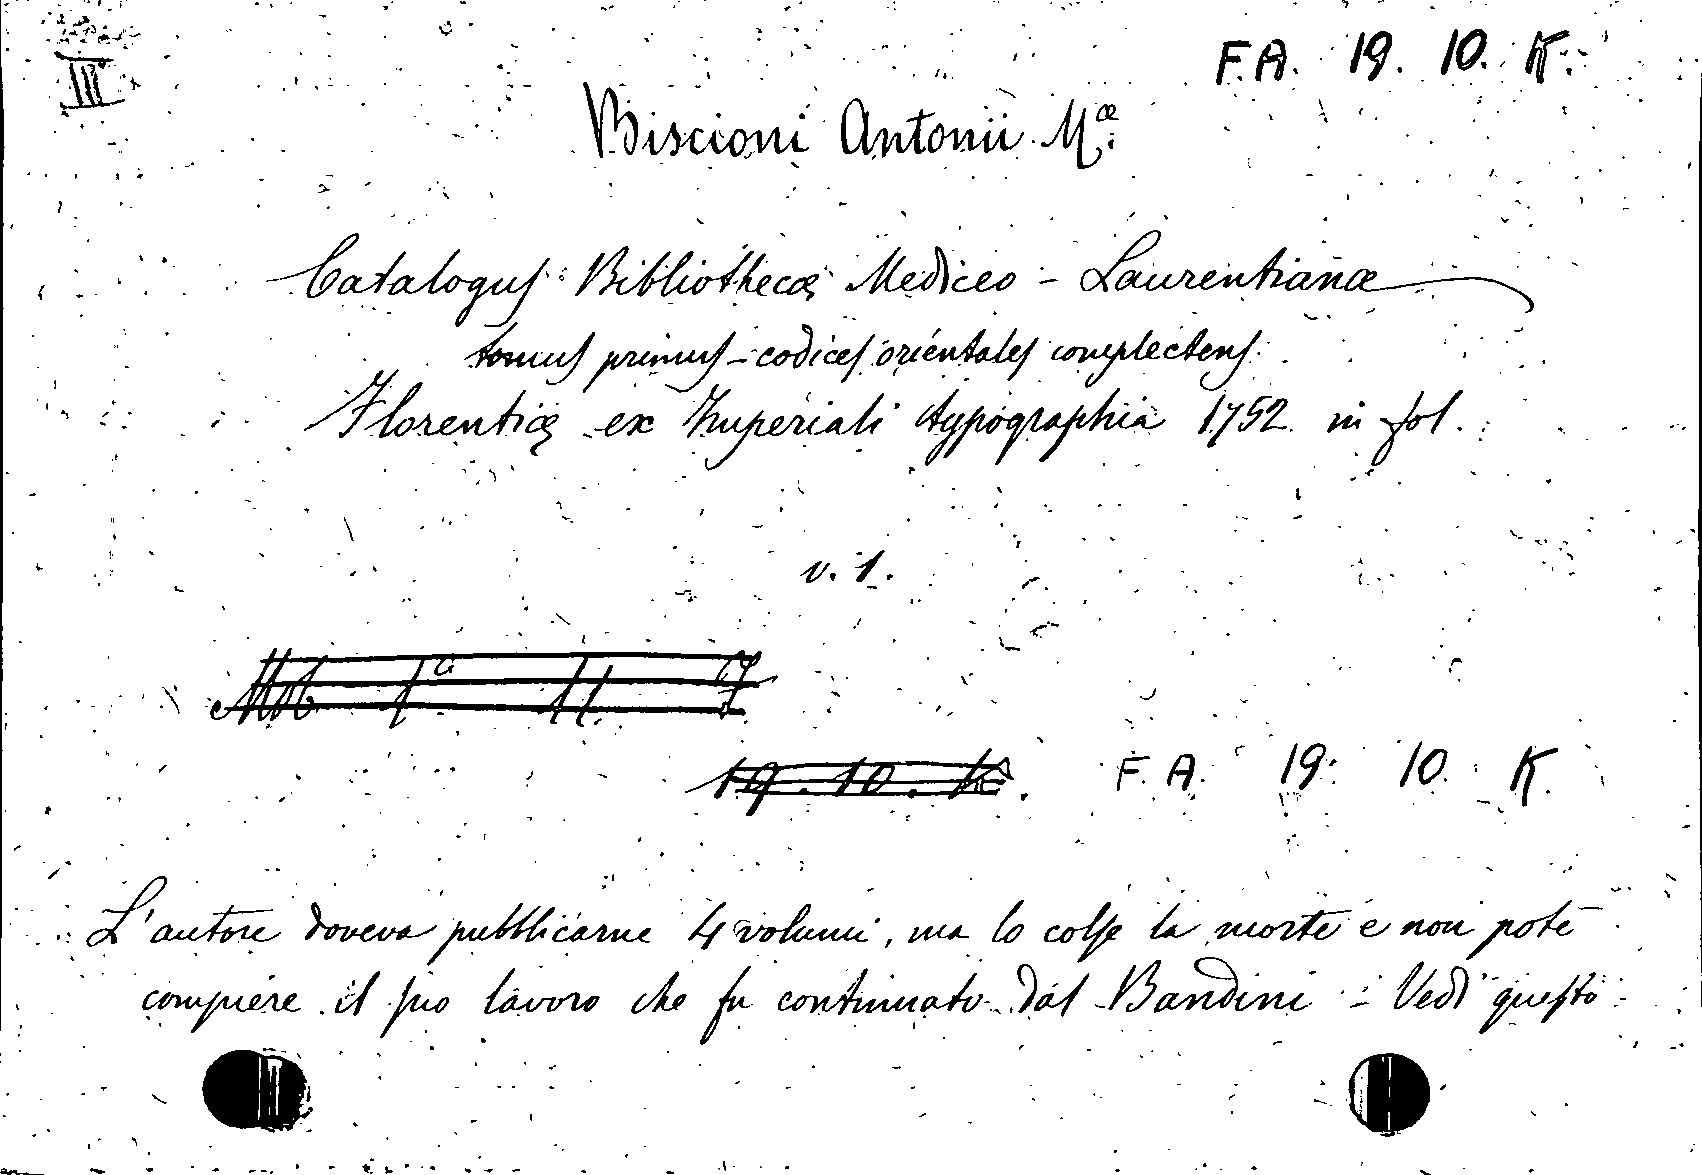 III
F. A. 19. 10. K.
Biscioni Antonii Mæ.
Catalogus Bibliothecæ Mediceo - Laurentianæ
tomus primus - codices orientales complectens
Florentiæ ex Imperiali typographia 1752 in fol.
v. 1.
Mob 1a 11 7
19. 10. K.
F. A. 19. 10. K.
L'autore doveva pubblicarne 4 volumi, ma lo colse la morte e non potè
compiere il suo lavoro che fu continuato dal Bandini - Vedi questo